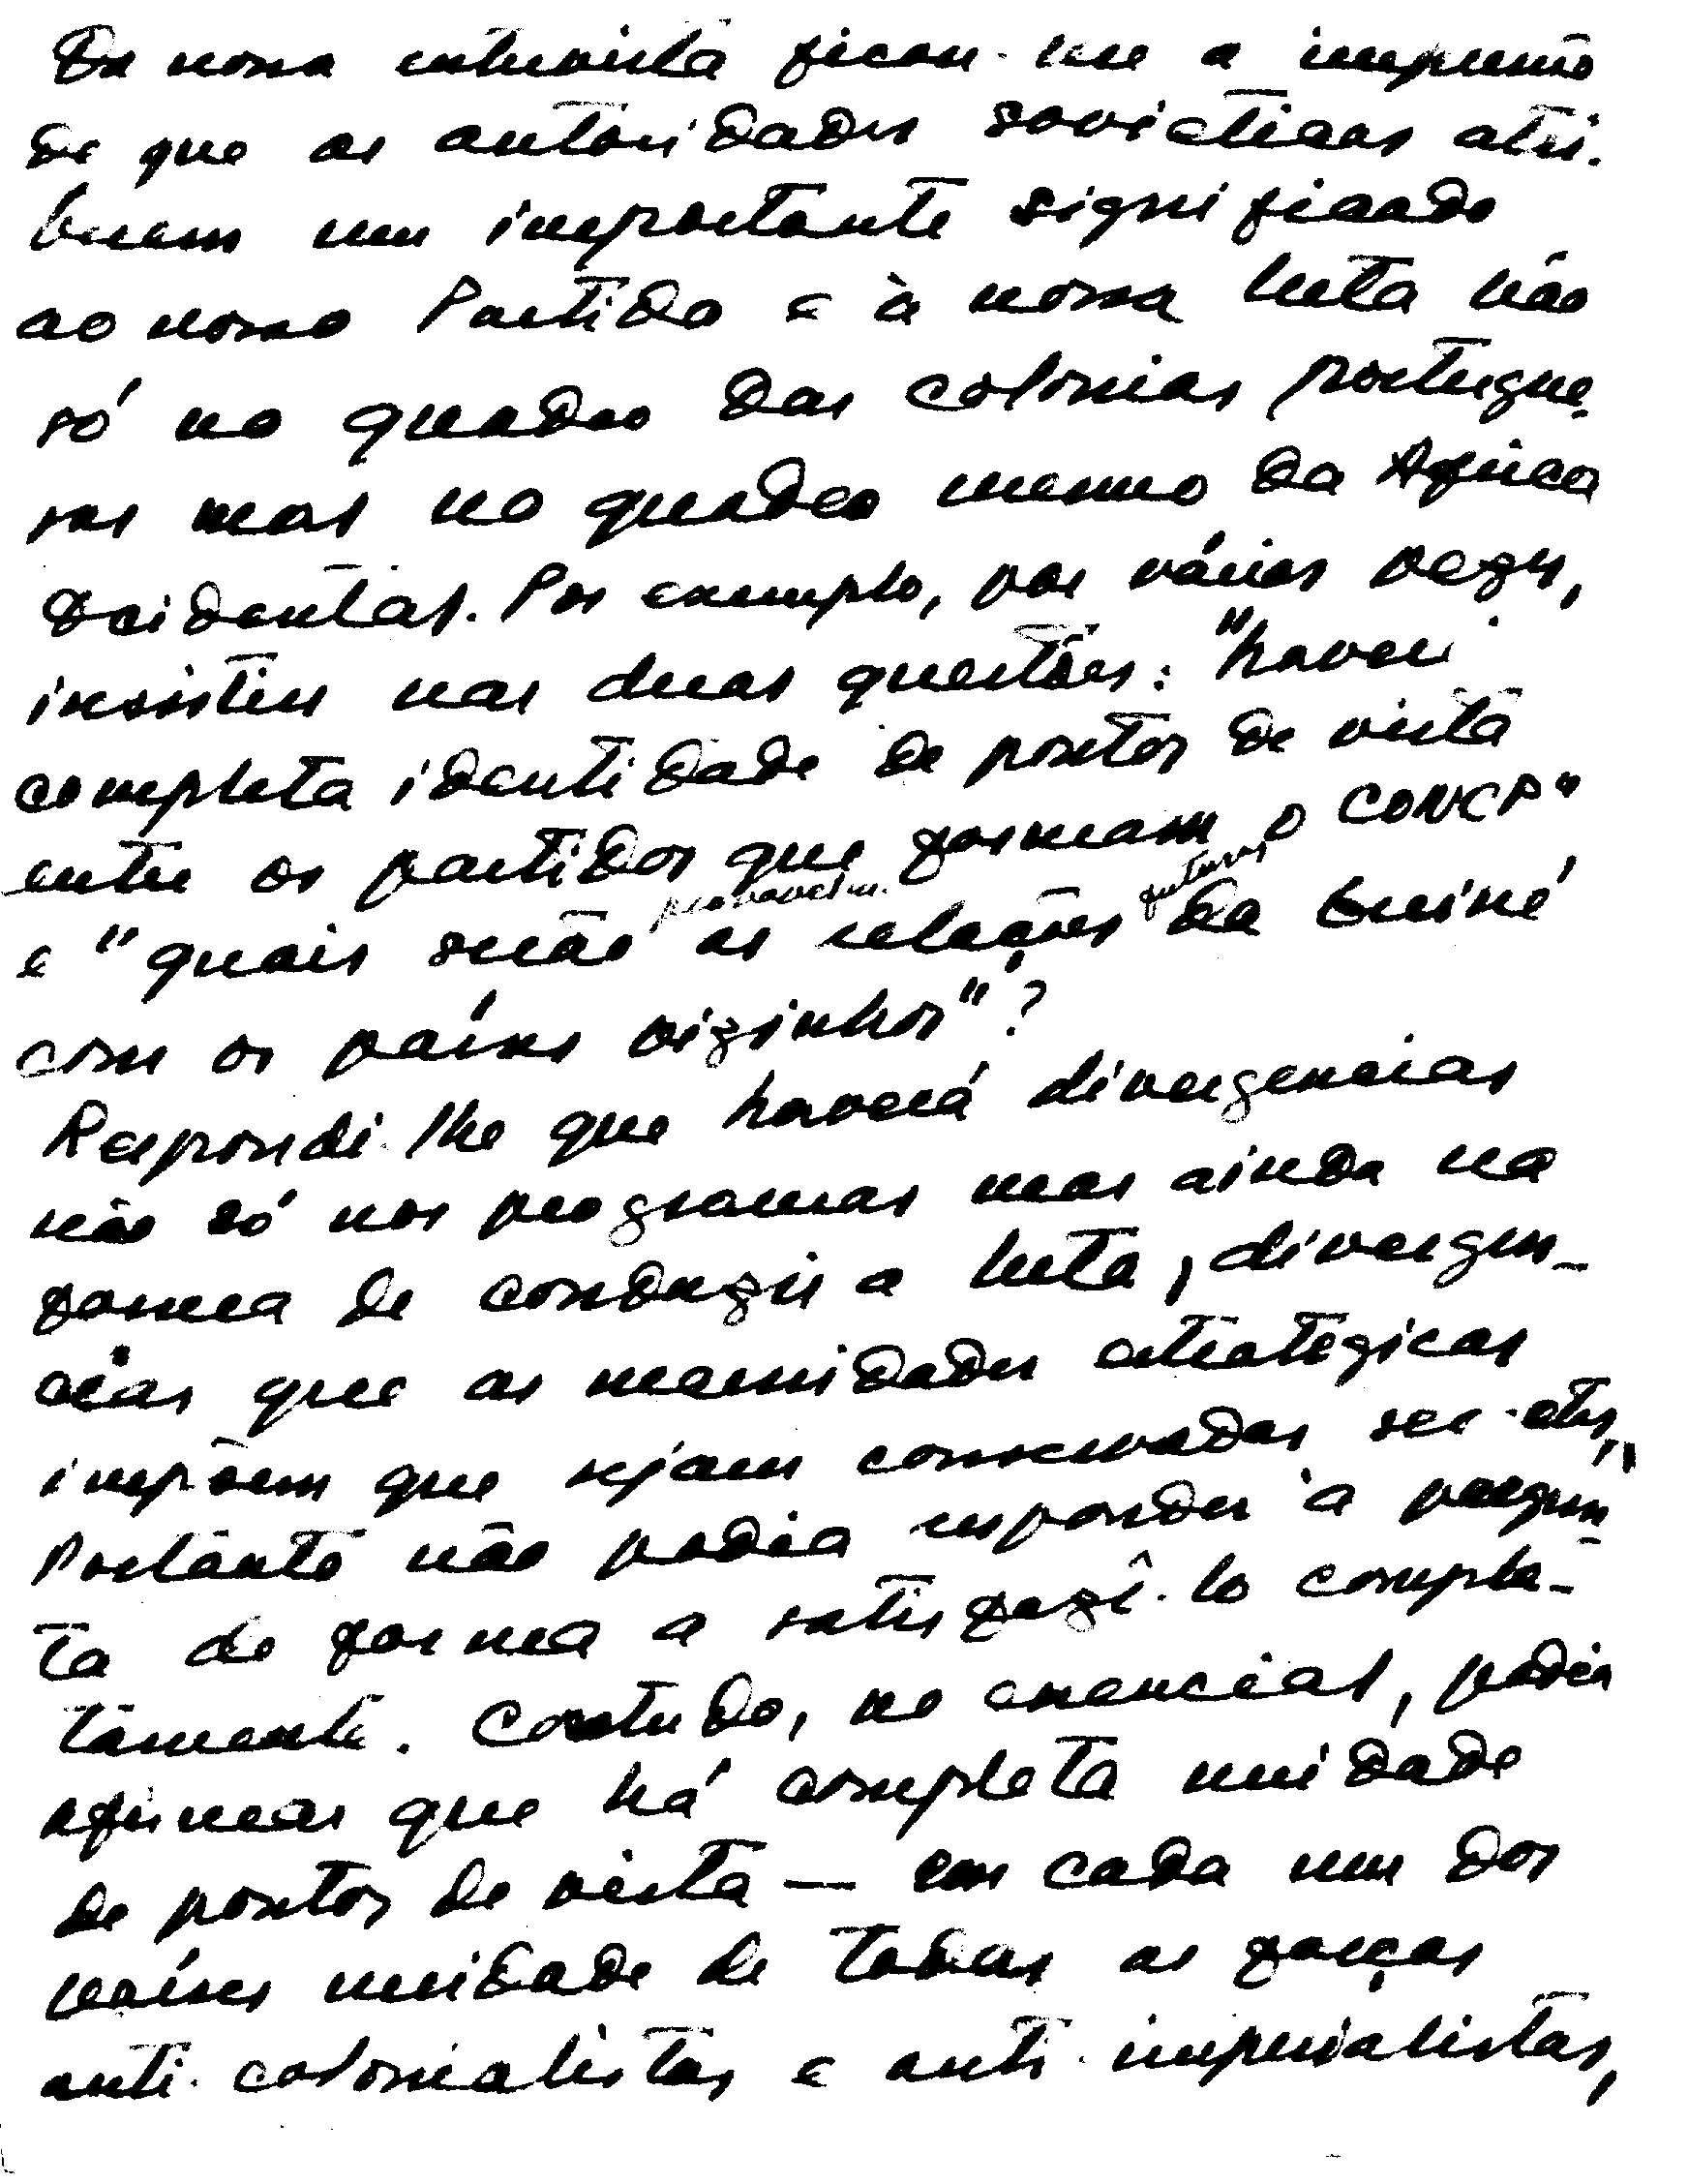 Da nossa entrevista ficou-me a impressão
de que as autoridades sovieticas atri-
buem um importante significado
ao nosso Partido e à nossa luta não
só no quadro das colonias portugue-
sas mas no quadro mesmo da Africa
Ocidental. Por exemplo, por várias vezes,
insistiu nas duas questões: "haverá
completa identidade de pontos de vista
entre os partidos que formam o CONCP"
e "quais serão provavelm. as relações futuras da Guiné
com os países vizinhos"?
Respondi-lhe que haverá divergencias
não só nos programas mas ainda na
forma de conduzir a luta, divergen-
cias que as necessidades estrategicas
impõem que sejam conservadas
Portanto não podia responder à pergun-
ta de forma a satisfazê-lo comple-
tamente. Contudo, no essencial, podia
afirmar que há completa unidade
de pontos de vista — em cada um dos
países unidade de todas as forças
anti-colonialistas e anti-imperialistas,